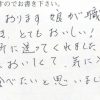 すのでお書き下さい。
おります 娘が職
は、とてもおいしい!
所に送ってくれました
もおいして、気に入
食べたいと思いました